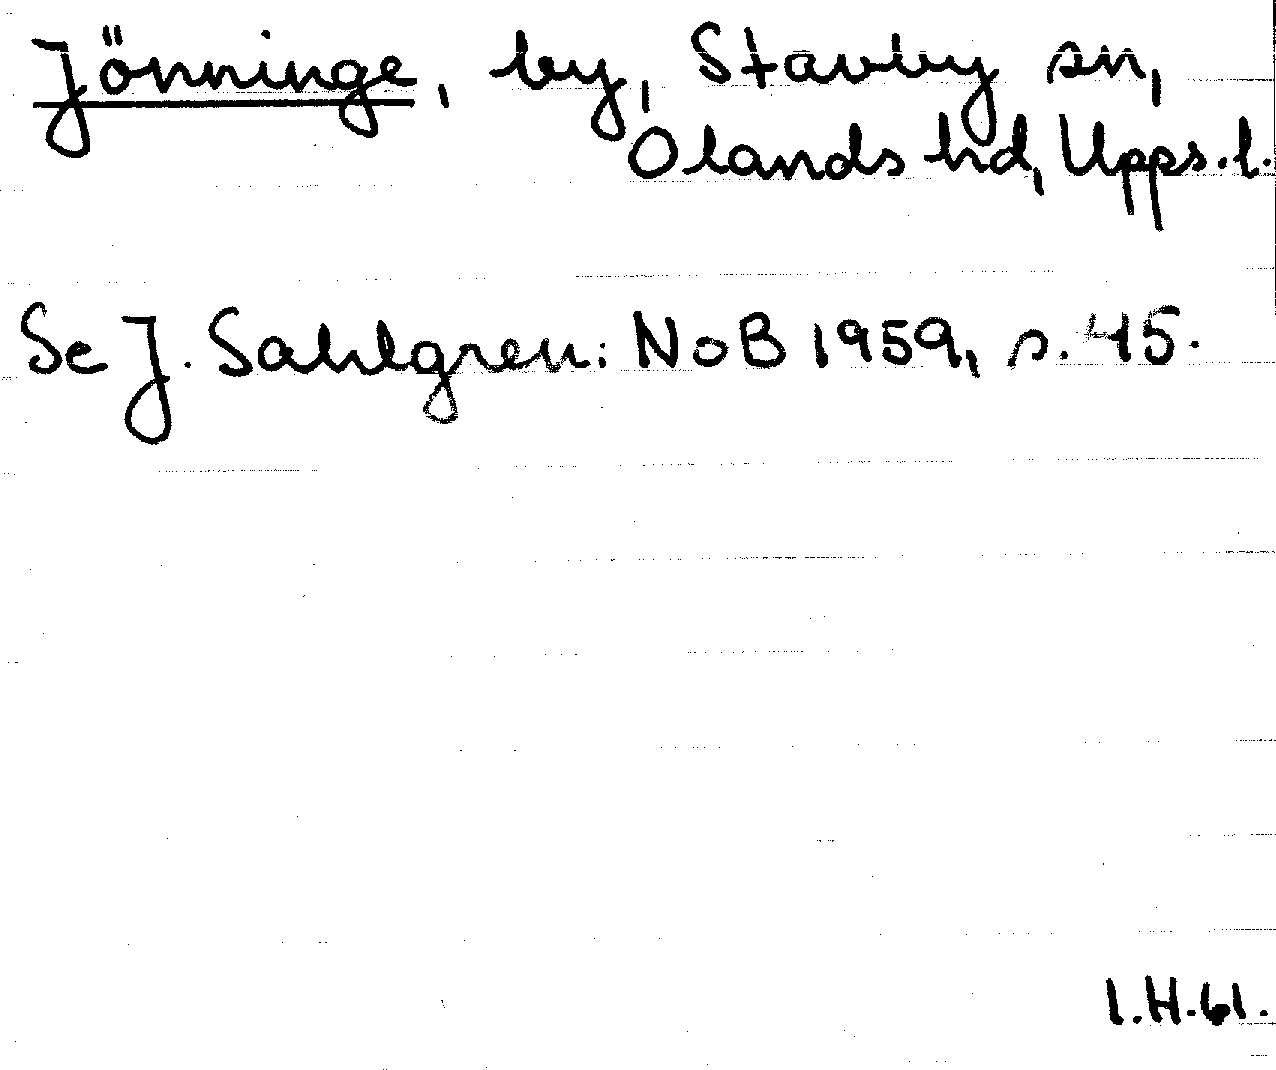 Jönninge, by, Stavby sn,
Olands hd, Upps. l.
Se J. Sahlgren: NoB 1959, s. 45.
I.H. 61.